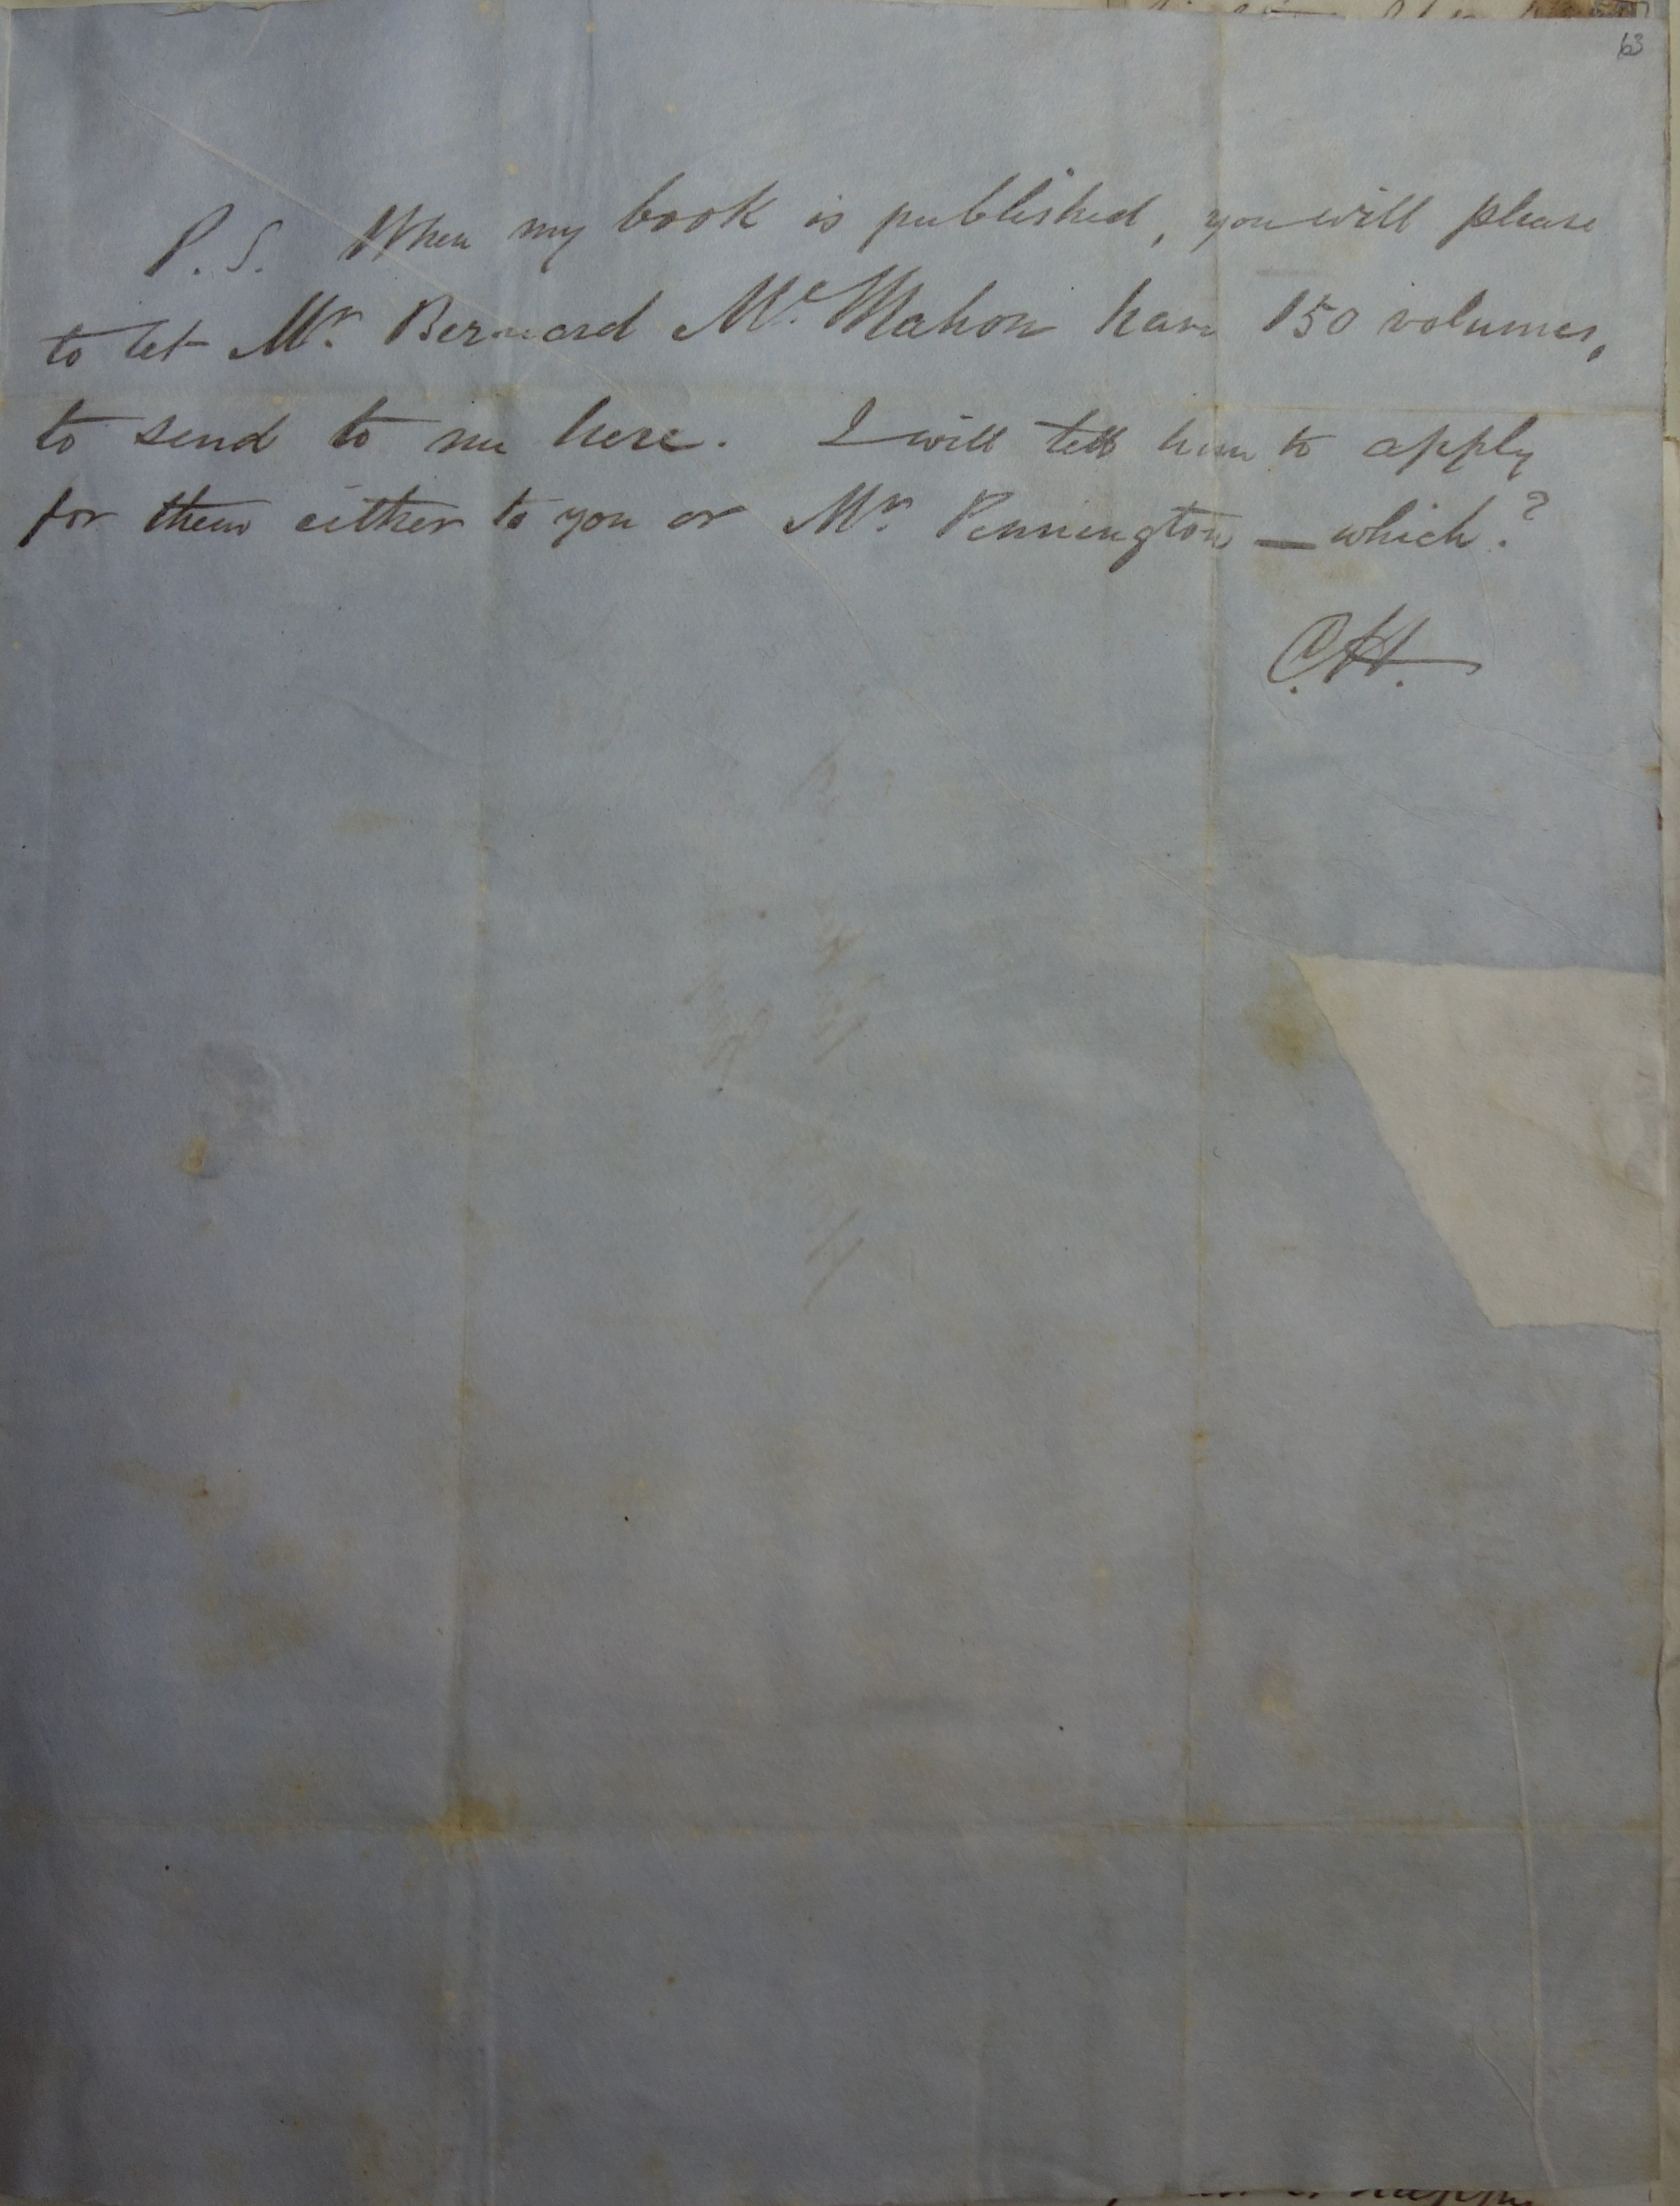 63
P. S. When my book is published, you will please
to let Mr. Bernard Mc. Mahon have 150 volumes,
to send to me here. I will tell him to apply
for them either to you or Mr. Pennington — which?
C.H.